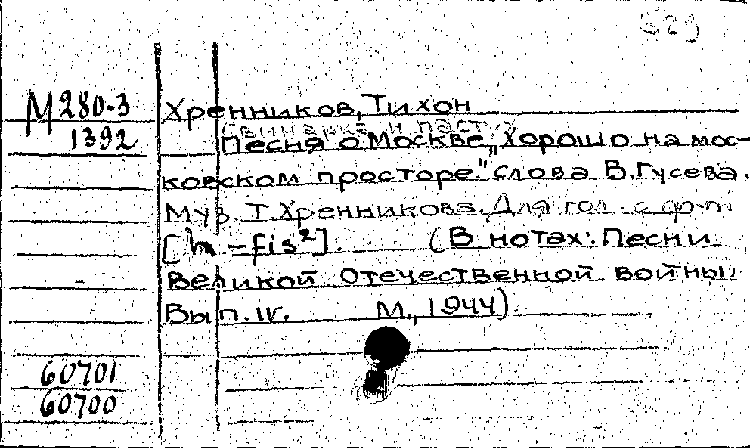 М280-3
1392
Хренников, Тихон
Свинарка и пастух
Песня о Москве „Хорошо на мос-
ковском просторе." слова В.Гусева.
Муз. Т.Хренникова. Для гол. с фп.
[h - fis²]. (В нотах: Песни
Великой Отечественной войны.
Вып. IV. М., 1944)
60701
60700